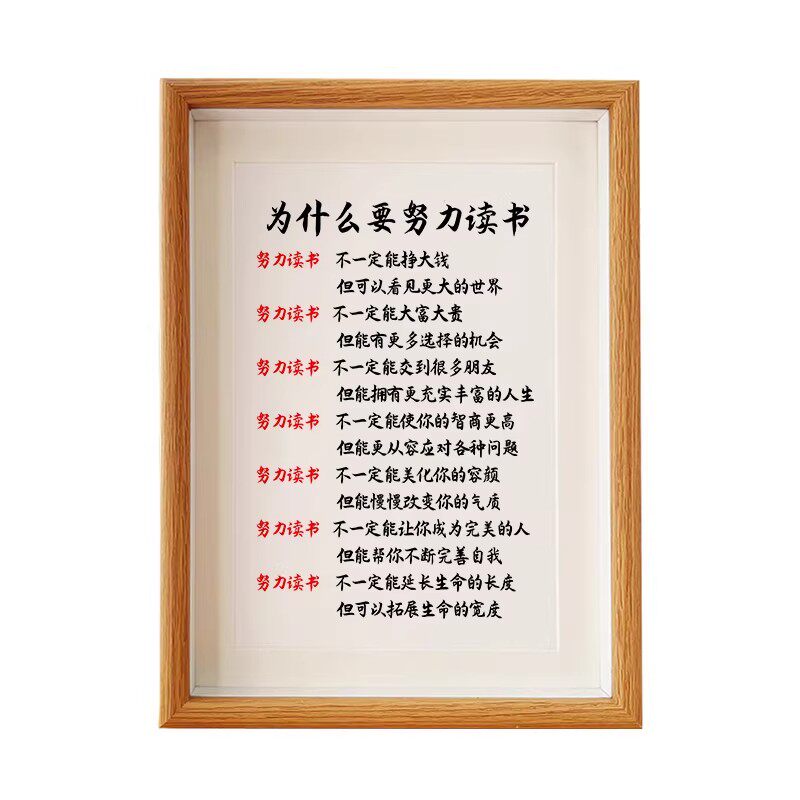 为什么要努力读书
努力读书 不一定能挣大钱
但可以看见更大的世界
努力读书 不一定能大富大贵
但能有更多选择的机会
努力读书 不一定能交到很多朋友
但能拥有更充实丰富的人生
努力读书 不一定能使你的智商更高
但能更从容应对各种问题
努力读书 不一定能美化你的容颜
但能慢慢改变你的气质
努力读书 不一定能让你成为完美的人
但能帮你不断完善自我
努力读书 不一定能延长生命的长度
但可以拓展生命的宽度